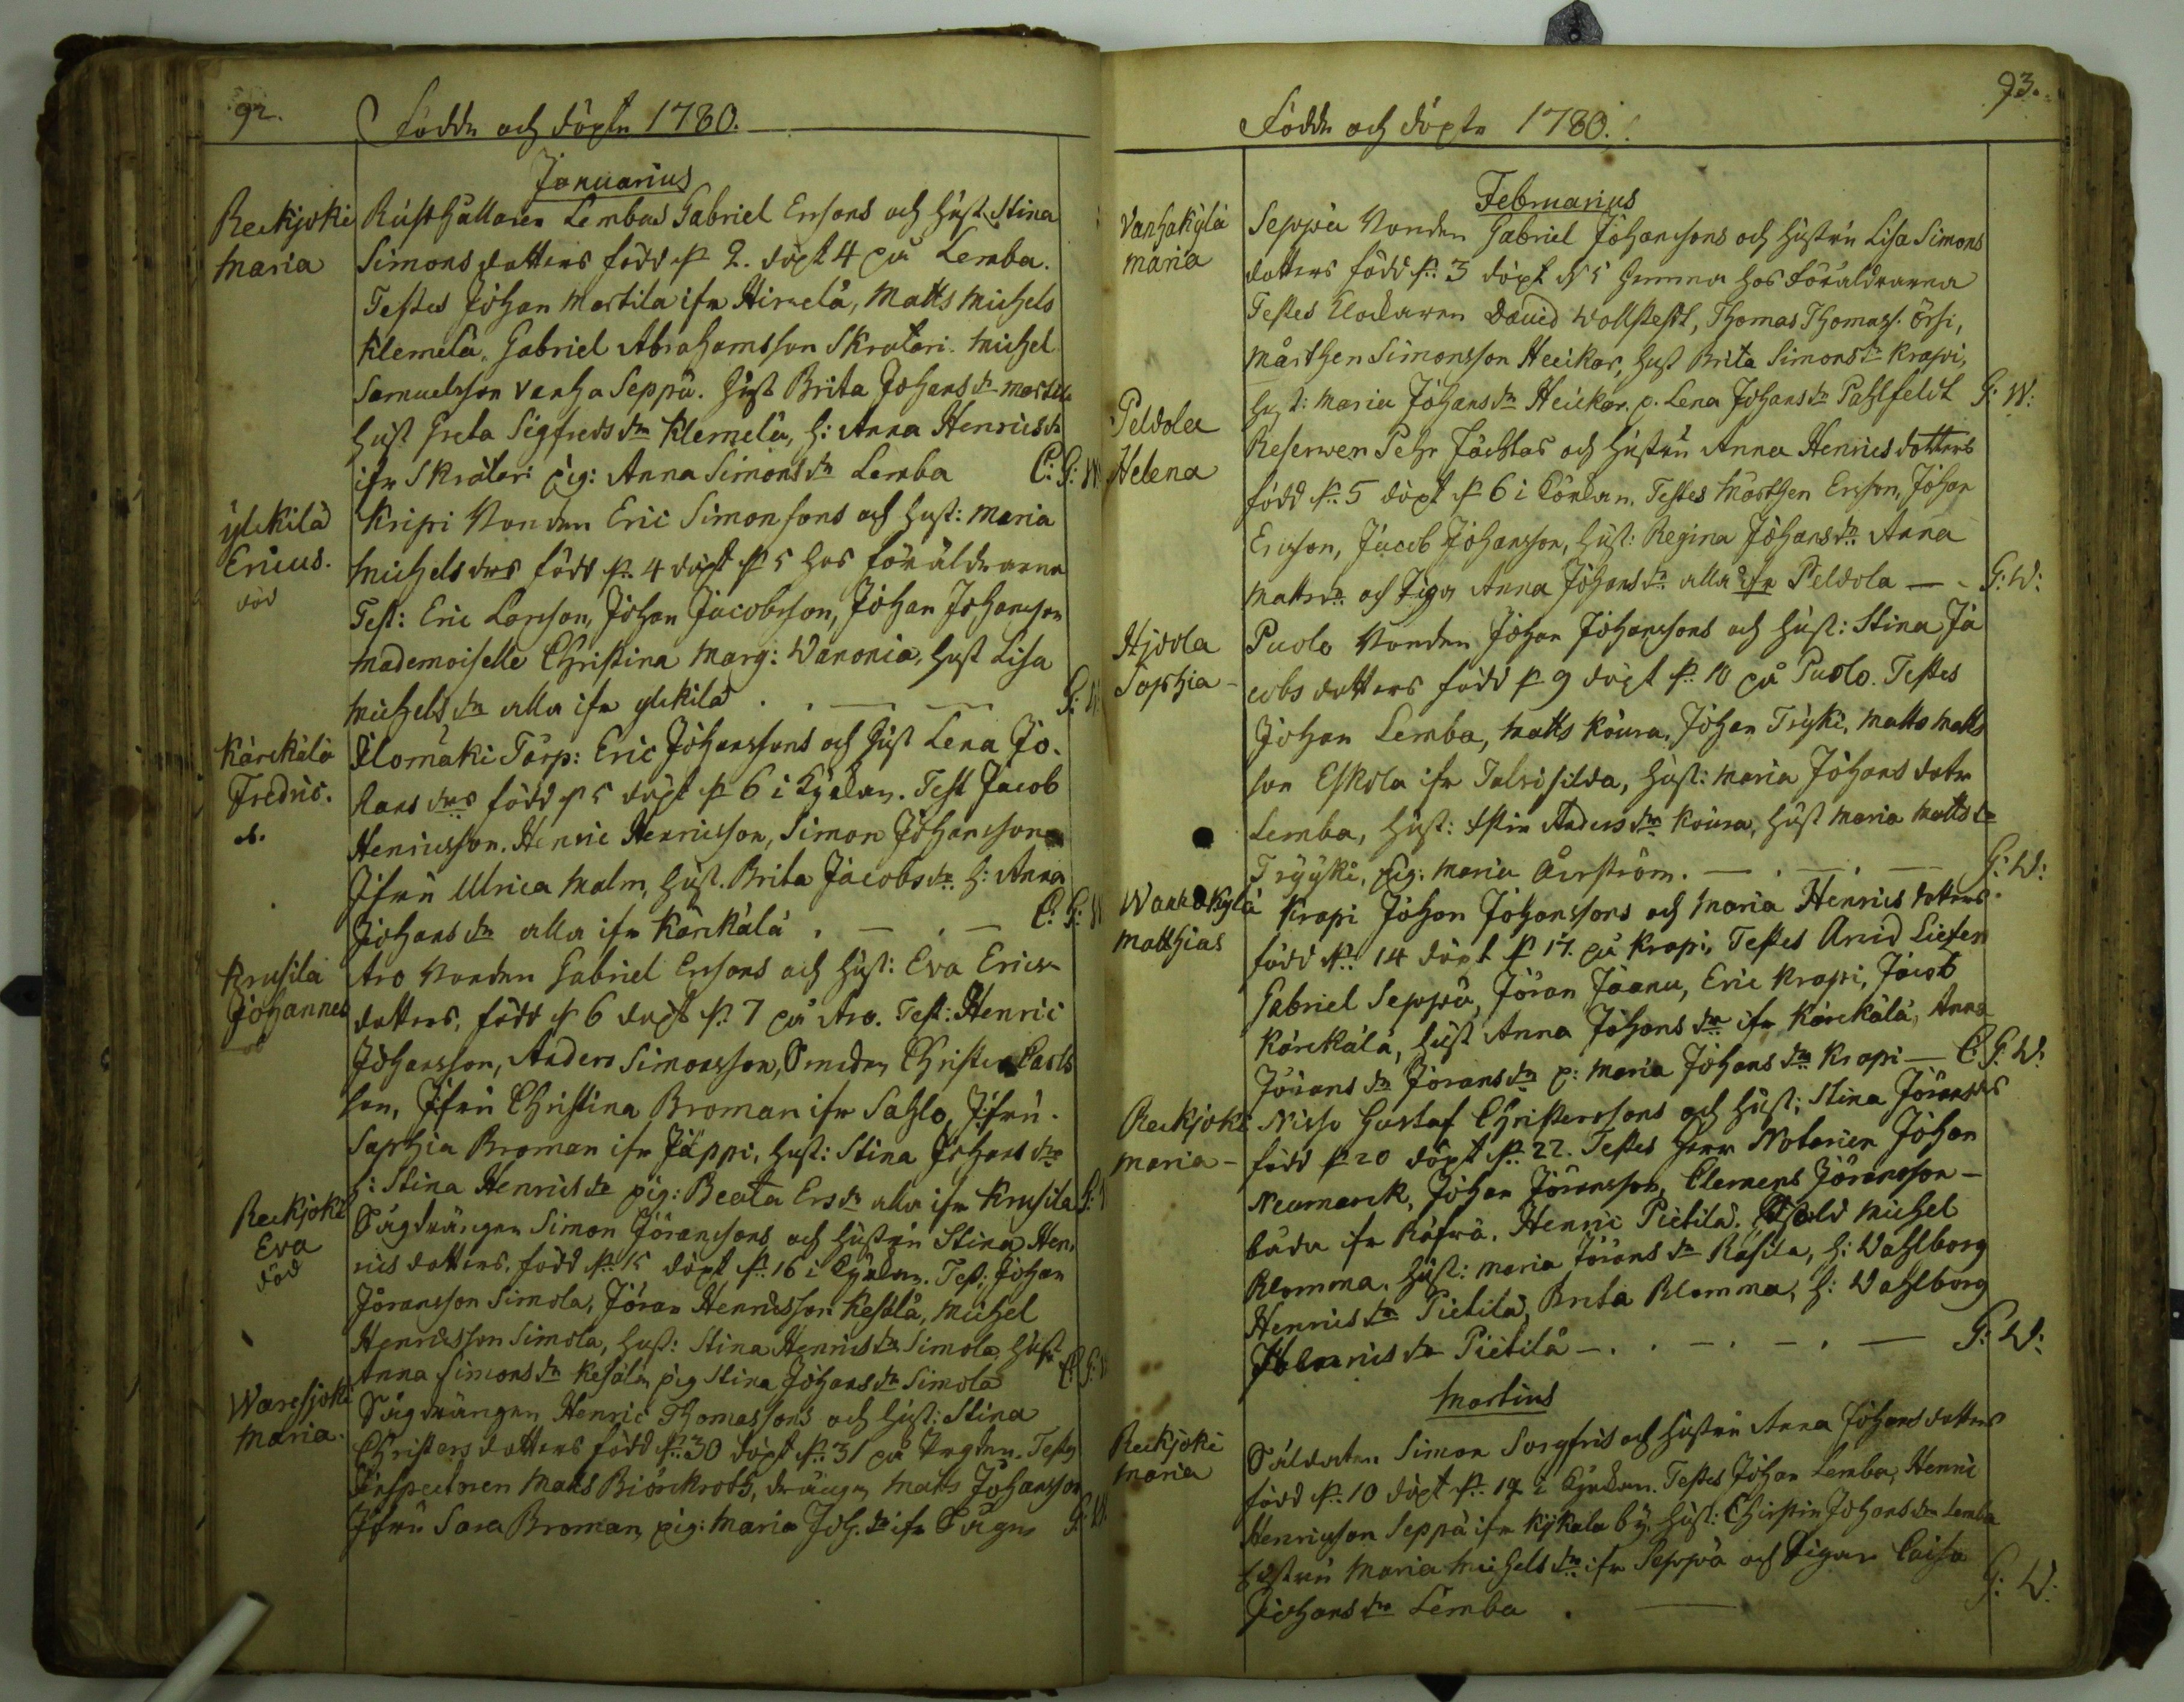 92.
Födde och döpte 1780.
Januarius
Reckjoki Rusthållaren Lembas Gabriel Ersons och Hust. Stina
Maria Simons dotters född d. 2. döpt 4 på Lemba.
Testes Johan Martila ifr Hirvelä, Matts Michels
Klemelä, Gabriel Abrahamsson Skratari. Michel
Samuelsson Vanha Seppä. Hust Brita Johans dr Martila
Hust Greta Sigfreds dr Klemelä, h: Anna Henrics dr
ifr Skrätari pig: Anna Simons dr Lemba C: G: W
Ylikilä Kripi Bonden Eric Simonsons och Hust: Maria
Ericus. Michels drs född d. 4 döpt d 5 hos föräldrarna
död
Test: Eric Larsson, Johan Jacobsson, Johan Johansson
Mademoiselle Christina Marg: Wanonia, Hust Lisa
Michels dr alla ifr Ylikilä G: W
Kärckälä Ilomäki Torp: Eric Johanssons och Hust Lena Jo-
Fredric. hans drs född d 5 döpt d 6 i Kyrkan. Test Jacob
d. Henricsson. Henric Henricsson, Simon Johansson
Jfru Ulrica Malm, Hust. Brita Jacobs dr. h: Anna
Johans dr alla ifr Kärckälä . C. G: W
Krusila Aro Bonden Gabriel Ersons och Hust: Eva Erics
Johannes dotters, född d 6 döpt d. 7 på Aro. Test: Henric
Johansson, Anders Simonsson, Smeden Christer Carls
son, Jfru Christina Broman ifr Sahlo, Jfru
Sophia Broman ifr Jäppi, Hust: Stina Johans dr
: Stina Henrics dr pig: Beata Ers dr alla ifr Krusila G: W
Reckjoki Sågdrängen Simon Jöranssons och Hustru Stina Hen-
Eva rics dotters, född d. 15 döpt d. 16 i Kyrkan. Test: Johan
död Jöransson Simola, Jöran Henricsson Kesälä, Michel
Henricsson Simola, Hust: Stina Henrics dr Simola, Hust
Anna Simons dr Kesälä, pig Stina Johans dr Simola C. G: W
Waresjoki Sågdrängen Henric Thomassons och Hust: Stina
Maria. Christers dotters född d. 30 döpt d. 31 på Sågen. Testes
Inspectoren Mats Biörckroth, drängen Matts Johansson
Jfru Sara Broman, pig: Maria Joh. dr ifr Sågen G: W.
93.
Födde och döpte 1780.
Februarius
Vanhakylä Seppä Bonden Gabriel Johanssons och Hustru Lisa Simons
Maria dotters född d. 3 döpt d 5 hemma hos Föräldrarna
Testes Klockaren David Wallstedt, Thomas Thomass. Örsi,
Mårthen Simonsson Heickar, Hust Brita Simons dr Krapi,
Hust: Maria Johans dr Heickar. p. Lena Johans dr Pahlfeldt G: W:
Peldola Reserven Pehr Jächlas och Hustru Anna Henrics dotters
Helena född d. 5 döpt d 6 i Kyrkan. Testes Mårthen Ersson, Johan
Ericsson, Jacob Johansson, Hust: Regina Johans dr. Anna
Matts dr och Pigan Anna Johans dr alla ifr Peldola G: W:
Hjdola Puolo Bonden Johan Johanssons och Hust: Stina Ja
Sophia cobs dotters född d 9 döpt d. 10 på Puolo. Testes
Johan Lemba, Matts Koura, Johan Tryki, Matts Matts
son Eskola ifr Talvisilda, Hust: Maria Johans dotr
Lemba, Hust: Anders dr Koura, Hust Maria Matts dr
Tryyki, pig. Maria Åhrström. G: W:
Wanhakylä Krapi Johan Johanssons och Maria Henrics dotters
Matthias född d. 14 döpt d 17. på Krapi, Testes Arvid Liefen
Gabriel Seppä, Jöran Jaanu, Eric Krapi, Jacob
Kärckälä, Hust Anna Johans dr ifr Kärckälä, Anna
Jörans dr Jörans dr p: Maria Johans dr Krapi C: G: W:
Reckjoki Nisso Gustaf Christerssons och Hust: Stina Jörans drs
Maria född d 20 döpt d. 22. Testes Herr Notarien Johan
Neumanck, Johan Jöransson, Clemens Jöransson
båda ifr Räfwä, Henric Pietilä. Sold Michel
Blomma. Hust: Maria Jörans dr Räsila, H: Wahlborg
Henrics dr Pietilä, Brita Blomma, H: Wahlborg
Henrics dr Pietilä G: W:
Martius
Reckjoki Soldaten Simon Sorgfris och Hustru Anna Johans dotters
Maria född d. 10 döpt d. 19 i Kyrkan. Testes Johan Lemba, Henric
Henricsson Seppä ifr Kykala by. Hust: Chirstin Johans dr Lemba
Hustru Maria Michels dr. ifr Seppä och Pigan Caisa
Johans dr Lemba . G: W: